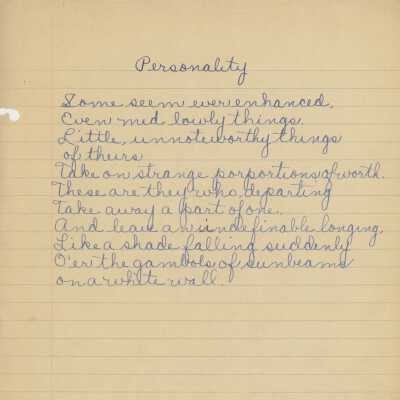 Personality
Some seem ever enhanced,
Even mid lowly things.
Little, unnoteworthy things
of theirs
Take on strange porportions of worth.
These are they who, departing
Take away a part of one.
And leave an indefinable longing,
Like a shade falling suddenly
O'er the gambols of sunbeams
on a white wall.